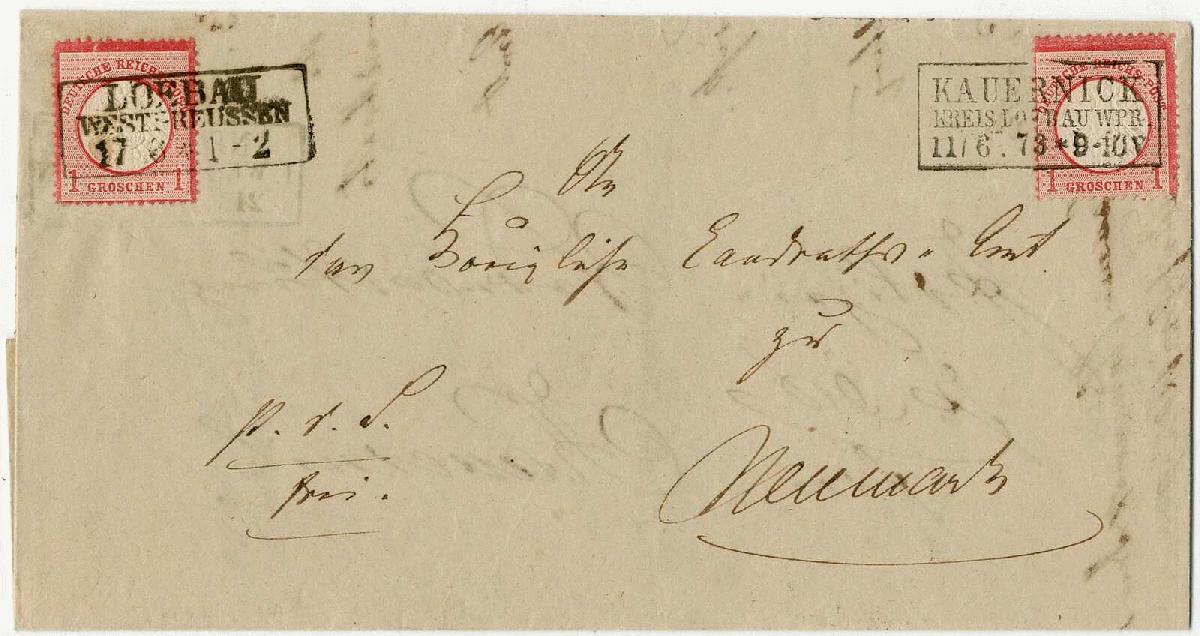 DEUTSCHE REICHS-POST
LOEBAU
WESTPREUSSEN
17 1-2
1 GROSCHEN 1
DEUTSCHE REICHS-POST
KAUERNICK
KREIS LOEBAU WPR.
11/6 73 * 9-10V
1 GROSCHEN 1
An
das Königliche Landraths-Amt
zu
Neumark
p. r. S.
frei.